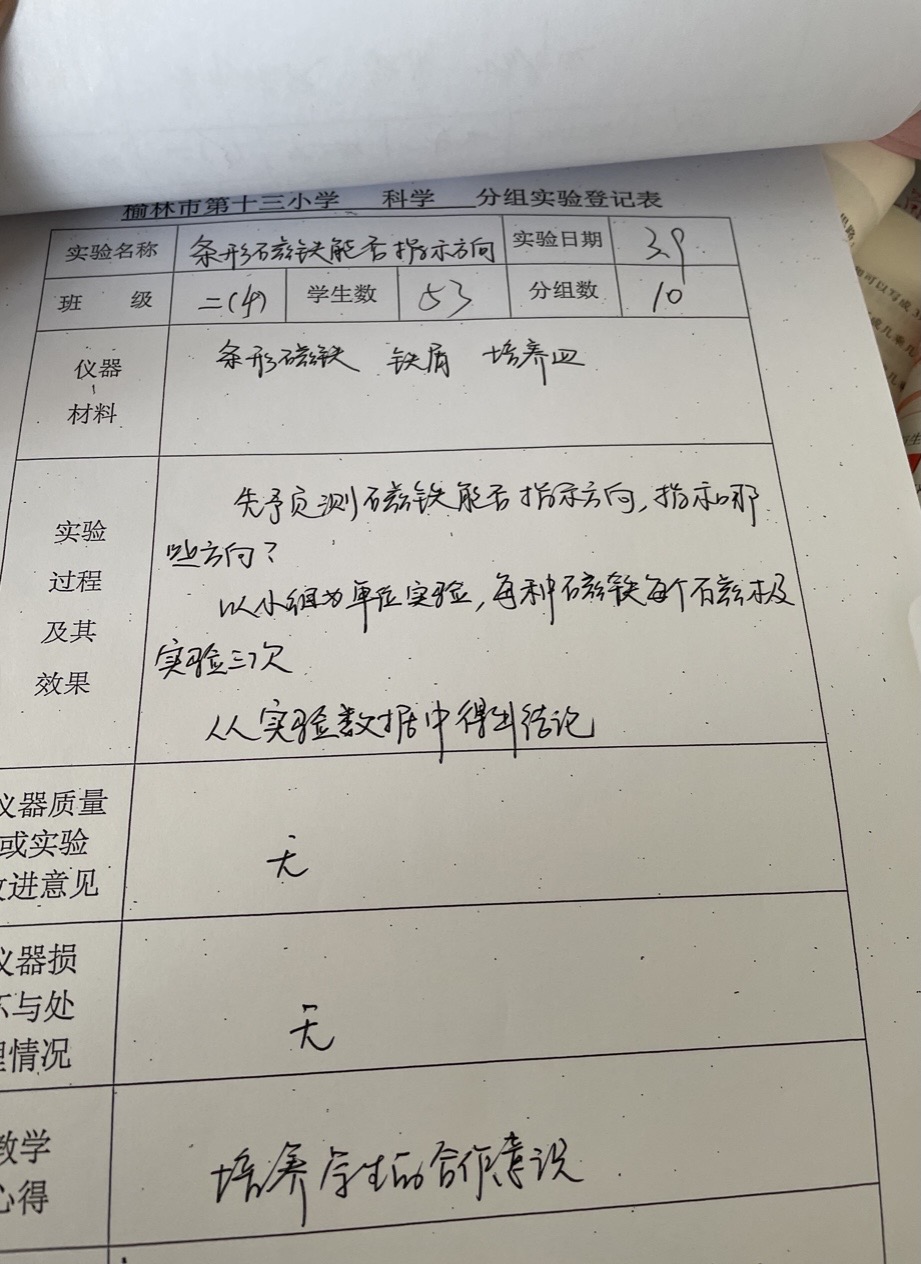 榆林市第十三小学 科学 分组实验登记表
实验名称 条形磁铁能否指示方向 实验日期 3.9
班 级 二(4) 学生数 53 分组数 10
仪器、材料 条形磁铁 铁屑 培养皿
实验过程及其效果
先予页测磁铁能否指示方向,指示哪
些方向?
以小组为单位实验,每种磁铁每个磁极
实验三次
从实验数据中得到结论
仪器质量
或实验
改进意见
无
仪器损
坏与处
理情况
无
教学
心得
培养学生的合作意识